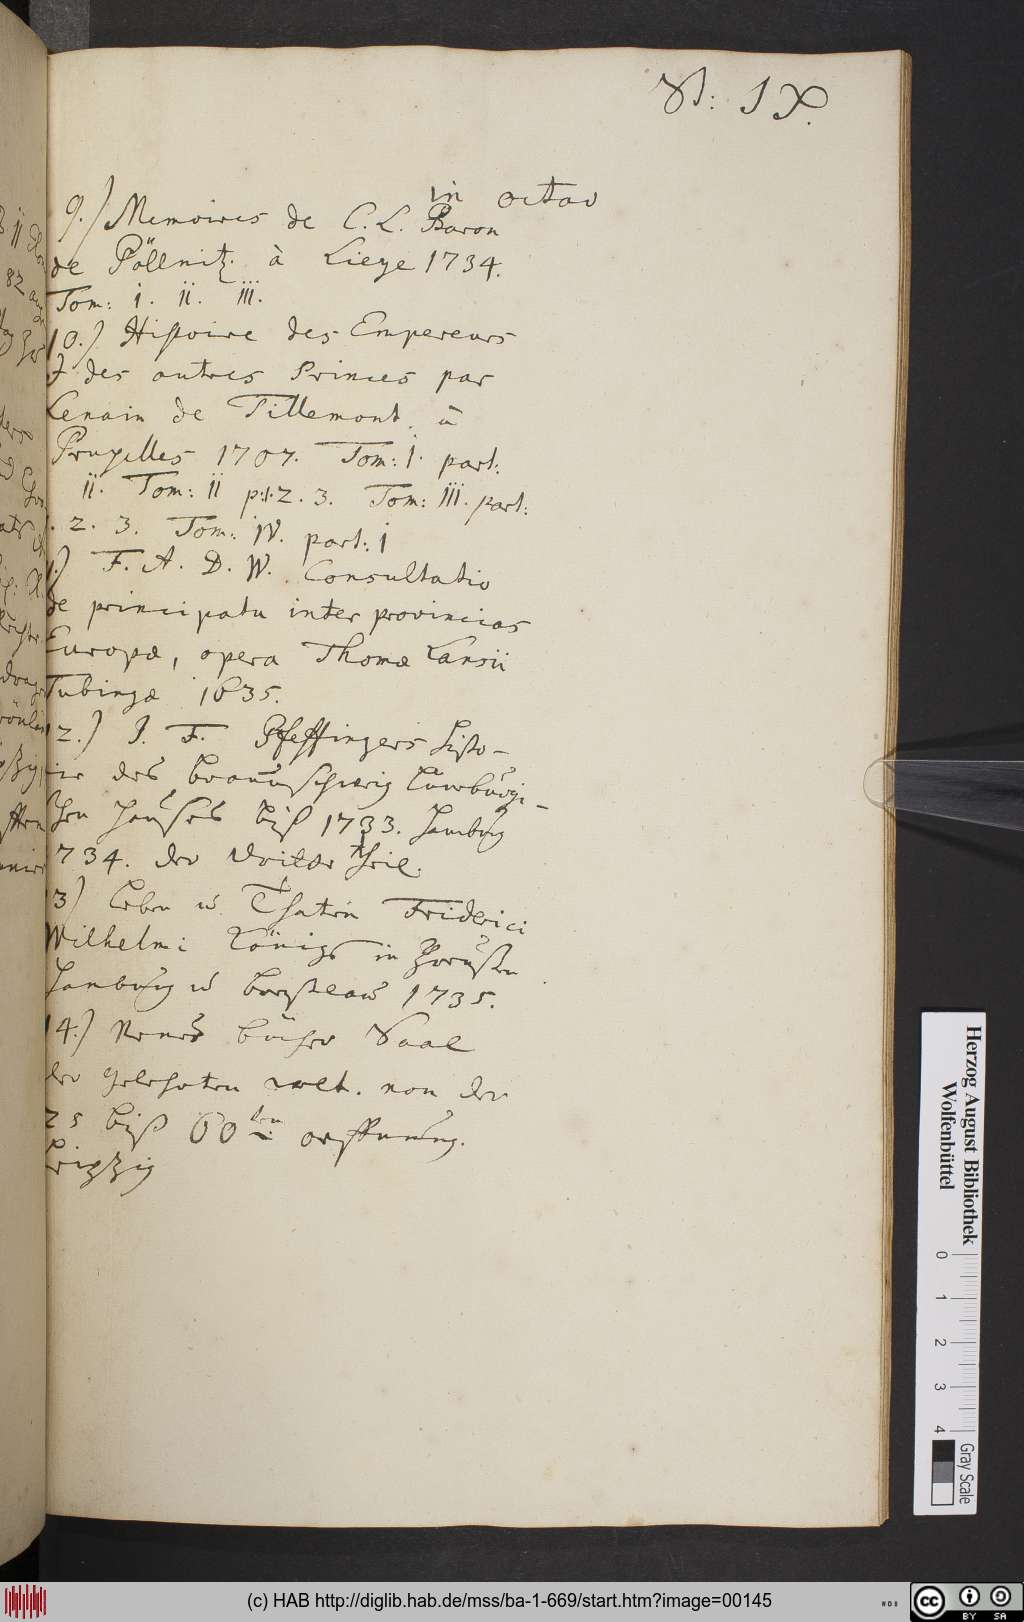 N: IX.
in octav
9.) Memoires de C. L. Baron
de Pöllnitz. à Liege 1734.
Tom: i. ii. iii.
10.) Histoire des Empereurs
& des autres Princes par
Lenain de Tillemont. à
Bruxelles 1707. Tom: i. part:
ii. Tom: ii p:1.2.3. Tom: iii. part:
1. 2. 3. Tom: iV. part: i
1.) F. A. D. W. Consultatio
de principatu inter provincias
Europæ, opera Thomæ Lansii
Tubingæ 1635.
12.) J. F. Pfeffingers Histo-
rie des Braunschweig Lüneburgi-
schen Hauses biß 1733. Hamburg
1734. der dritte theil.
13) Leben u. Thaten Friderici
Wilhelmi Königs in Preußen
Hamburg u Breßlau 1735.
14.) Neuer bücher Saal
der gelehrten welt. von der
25 biß 60ten oeffnung.
Leipzig
Herzog August Bibliothek
Wolfenbüttel
0 1 2 3 4
Gray Scale
(c) HAB http://diglib.hab.de/mss/ba-1-669/start.htm?image=00145
cc BY SA